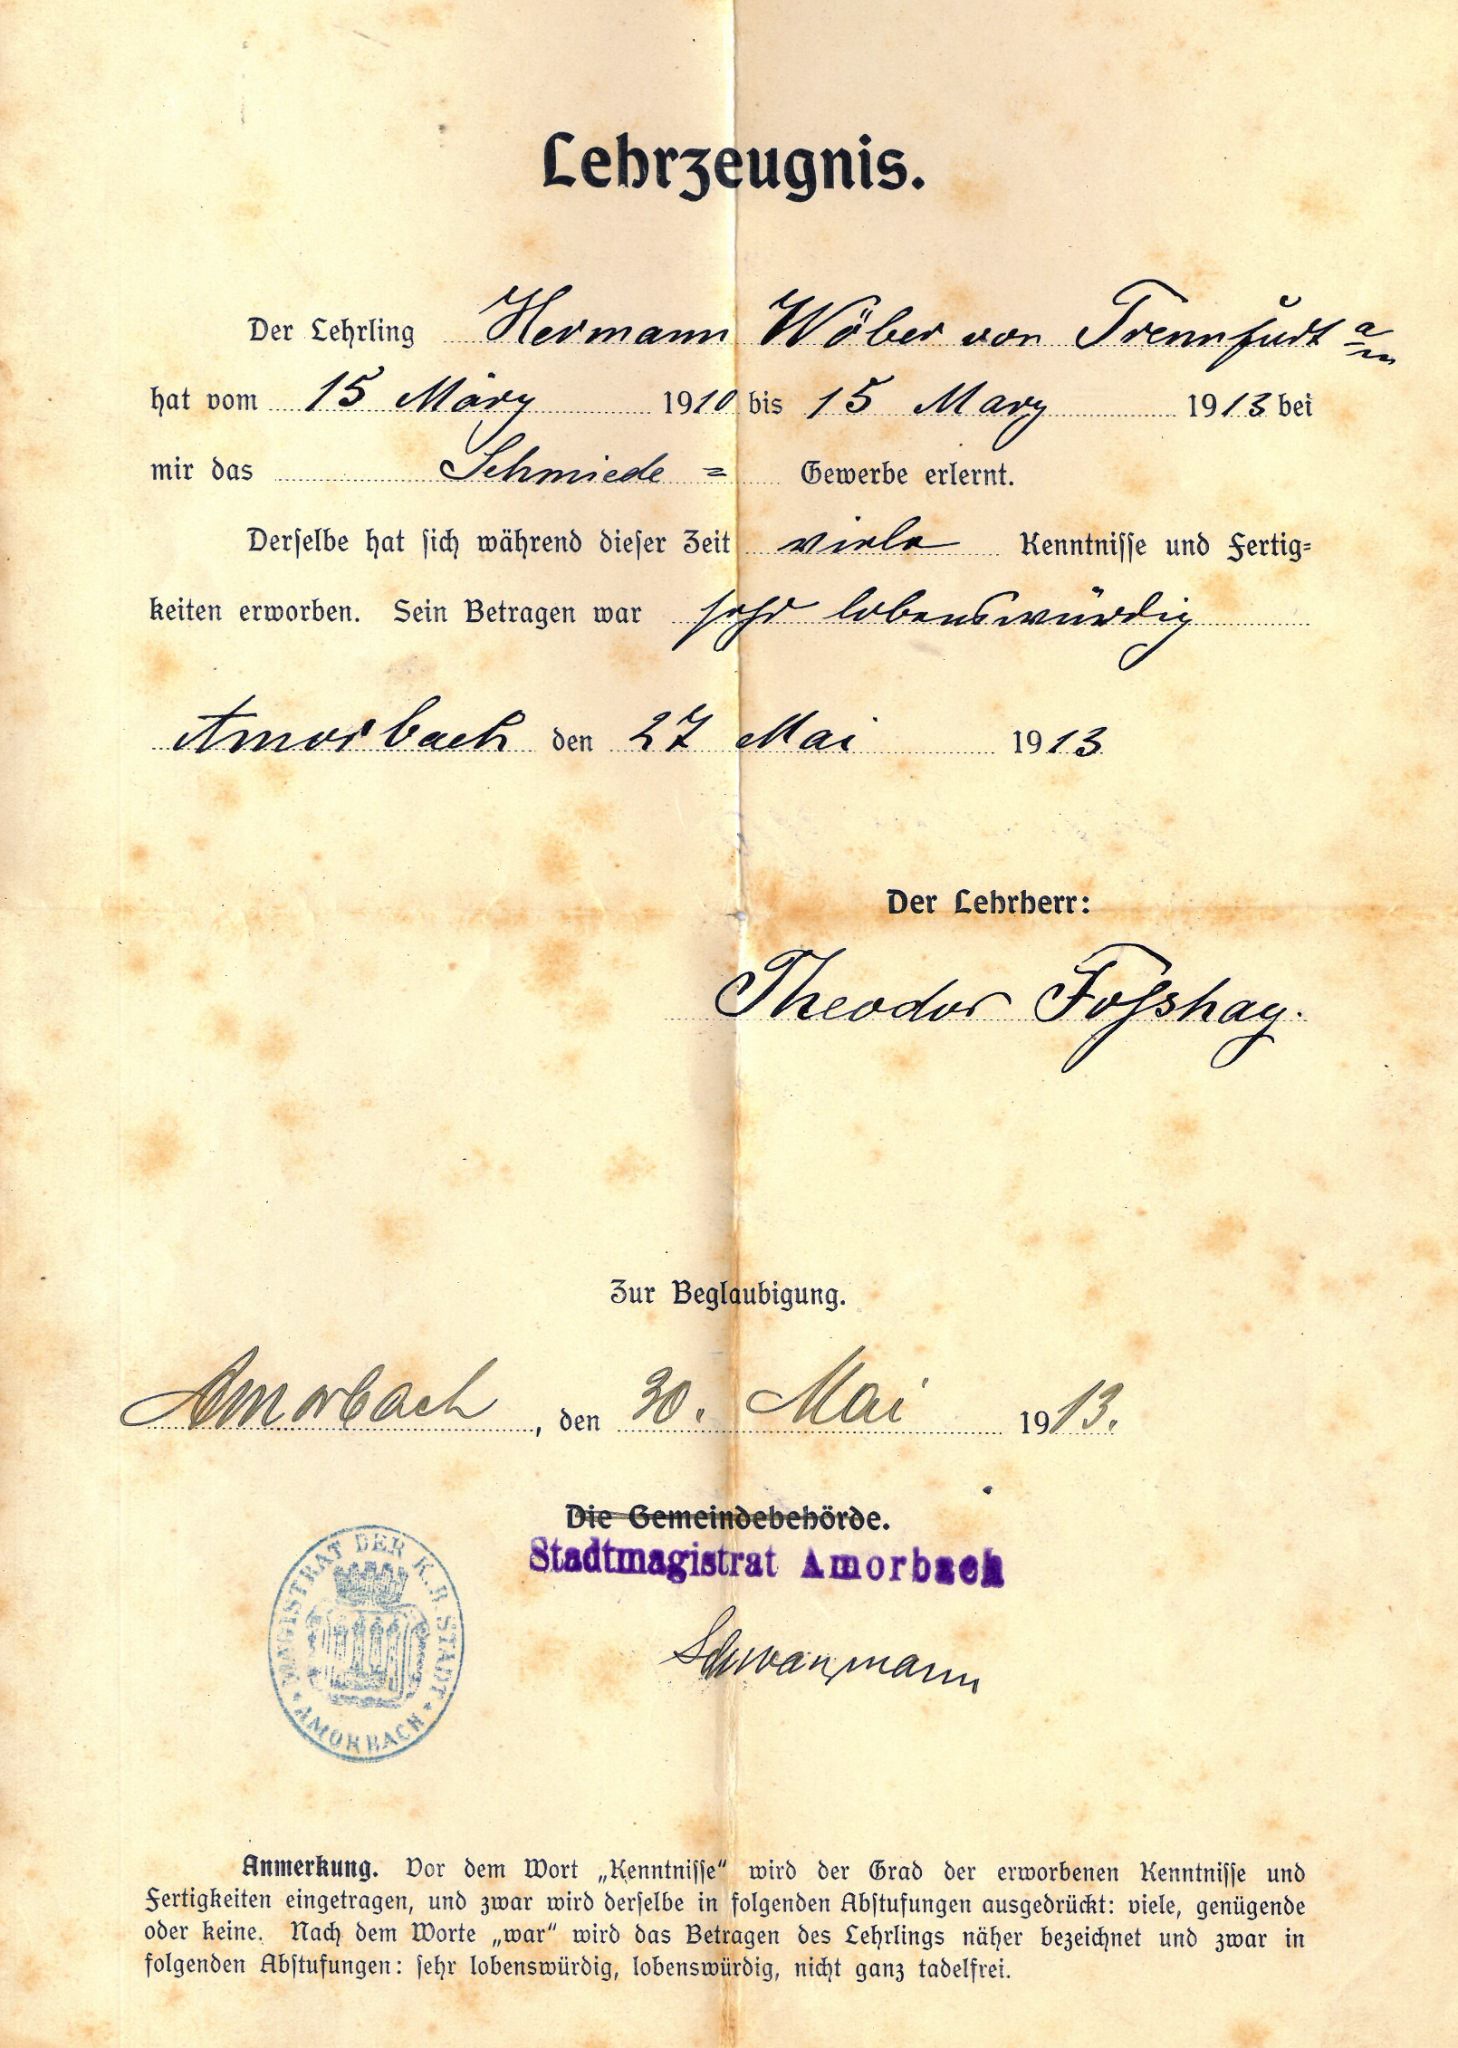 Lehrzeugnis.
Der Lehrling Hermann Wöber von Trennfurt a/m
hat vom 15 März 1910 bis 15 Marz 1913 bei
mir das Schmiede= Gewerbe erlernt.
Derselbe hat sich während dieser Zeit viele Kenntnisse und Fertig=
keiten erworben. Sein Betragen war sehr lobenswürdig
Amorbach den 27 Mai 1913
Der Lehrherr:
Theodor Foßshag.
Zur Beglaubigung.
Amorbach, den 30. Mai 1913.
Die Gemeindebehörde.
Stadtmagistrat Amorbach
MAGISTRAT DER K. B. STADT
AMORBACH
Anmerkung. Vor dem Wort „Kenntnisse“ wird der Grad der erworbenen Kenntnisse und
Fertigkeiten eingetragen, und zwar wird derselbe in folgenden Abstufungen ausgedrückt: viele, genügende
oder keine. Nach dem Worte „war“ wird das Betragen des Lehrlings näher bezeichnet und zwar in
folgenden Abstufungen: sehr lobenswürdig, lobenswürdig, nicht ganz tadelfrei.